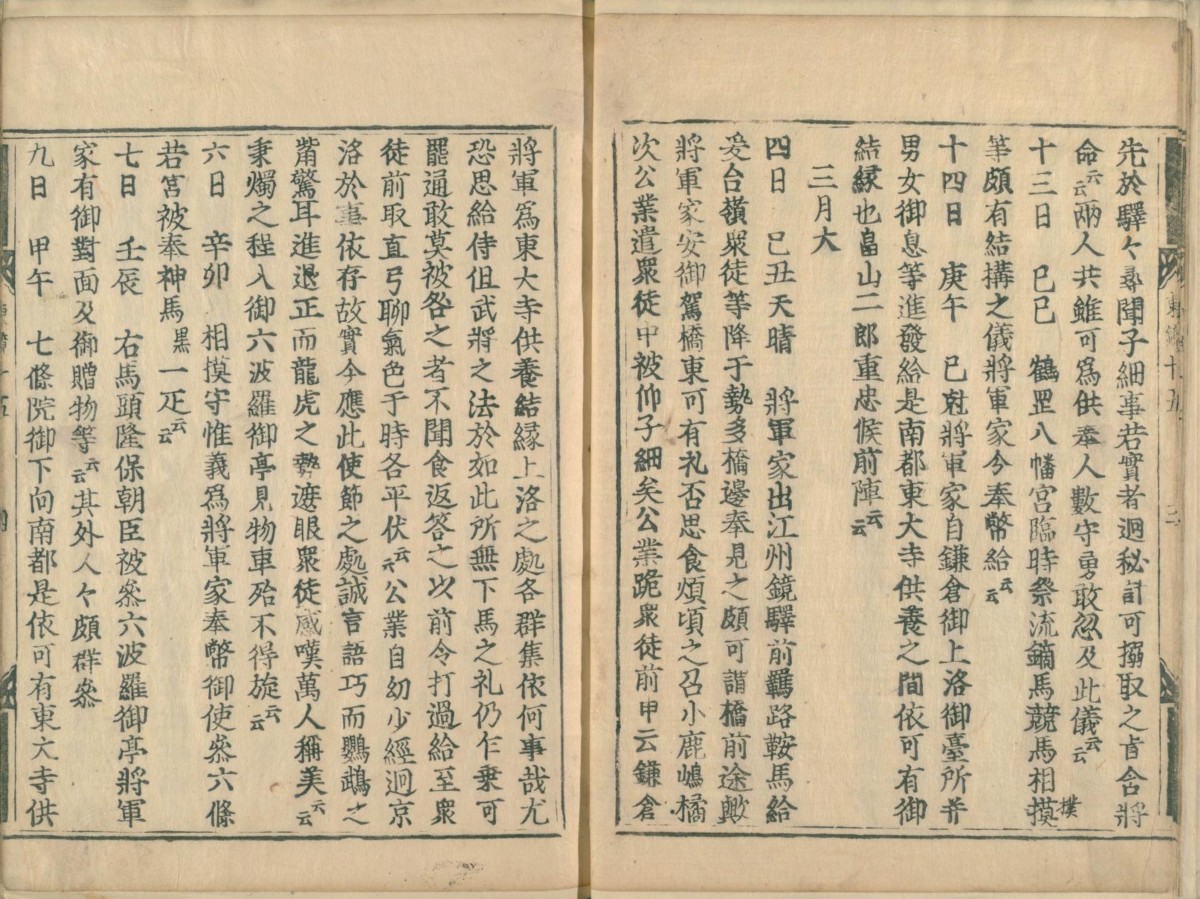 先於驛々尋聞子細事若實者迴秘計可搦取之旨含將
命云云兩人共雖可爲供奉人數守勇敢忽及此儀云云
十三日　己巳　鶴罡八幡宮臨時祭流鏑馬競馬相撲
等頗有結搆之儀將軍家令奉幣給云云
十四日　庚午　巳尅將軍家自鎌倉御上洛御臺所并
男女御息等進發給是南都東大寺供養之間依可有御
結縁也畠山二郎重忠候前陣云云
三月大
四日　己丑天晴　將軍家出江州鏡驛前羈路鞍馬給
爰台嶺衆徒等降于勢多橋邊奉見之頗可謂橋前途歟
將軍家安御駕橋東可有礼否思食煩頃之召小鹿嶋橘
次公業遣衆徒中被仰子細矣公業跪衆徒前申云鎌倉
將軍爲東大寺供養結縁上洛之處各群集依何事哉尤
恐思給侍但武將之法於如此所無下馬之礼仍乍乗可
罷通敢莫被咎之者不聞食返答之以前令打過給至衆
徒前取直弓聊氣色于時各平伏云云公業自幼少經迴京
洛於事依存故實今應此使節之處誠言語巧而鸚鵡之
觜驚耳進退正而龍虎之勢遮眼衆徒感嘆萬人稱美云云
秉燭之程入御六波羅御亭見物車殆不得旋云云
六日　辛卯　相摸守惟義爲將軍家奉幣御使參六條
若宮被奉神馬黒一疋云云
七日　壬辰　右馬頭隆保朝臣被參六波羅御亭將軍
家有御對面及御贈物等云云其外人々頗群參
九日　甲午　七條院御下向南都是依可有東大寺供